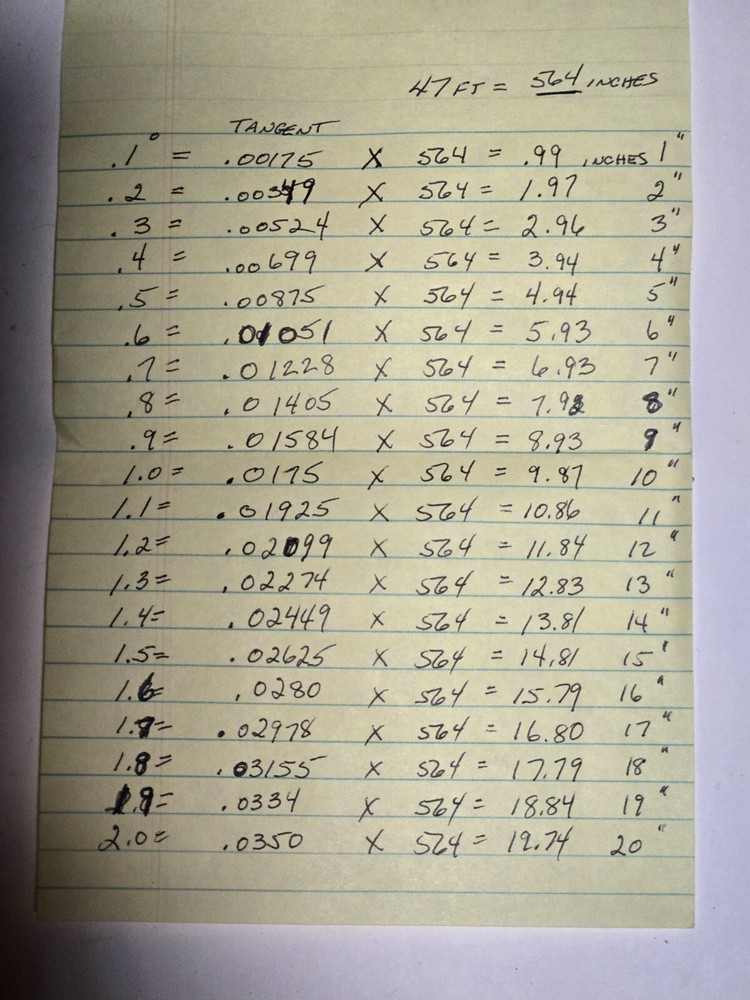 47 FT = 564 INCHES
TANGENT
.1° = .00175 X 564 = .99 INCHES 1"
.2 = .00349 X 564 = 1.97 2"
.3 = .00524 X 564 = 2.96 3"
.4 = .00699 X 564 = 3.94 4"
.5 = .00875 X 564 = 4.94 5"
.6 = .01051 X 564 = 5.93 6"
.7 = .01228 X 564 = 6.93 7"
.8 = .01405 X 564 = 7.93 8"
.9 = .01584 X 564 = 8.93 9"
1.0 = .0175 X 564 = 9.87 10"
1.1 = .01925 X 564 = 10.86 11"
1.2 = .02099 X 564 = 11.84 12"
1.3 = .02274 X 564 = 12.83 13"
1.4 = .02449 X 564 = 13.81 14"
1.5 = .02625 X 564 = 14.81 15"
1.6 = .0280 X 564 = 15.79 16"
1.7 = .02978 X 564 = 16.80 17"
1.8 = .03155 X 564 = 17.79 18"
1.9 = .0334 X 564 = 18.84 19"
2.0 = .0350 X 564 = 19.74 20"